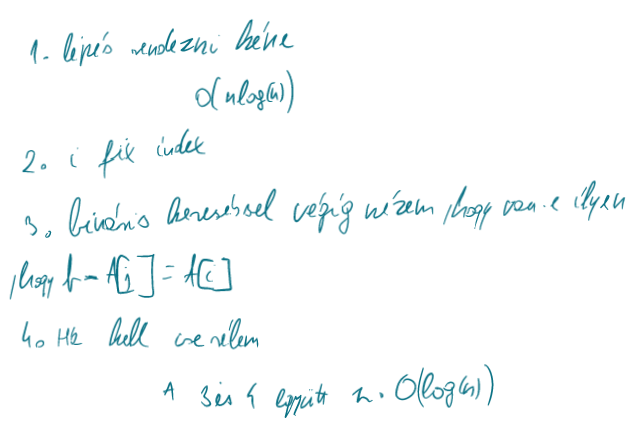 1. lépés rendezni kéne
O(nlog(n))
2. i fix index
3. bináris kereséssel végig nézem, hogy van-e ilyen
, hogy b - A[j] = A[i]
4. Ha kell cserélem
A 3 és 4 együtt n · O(log(n))